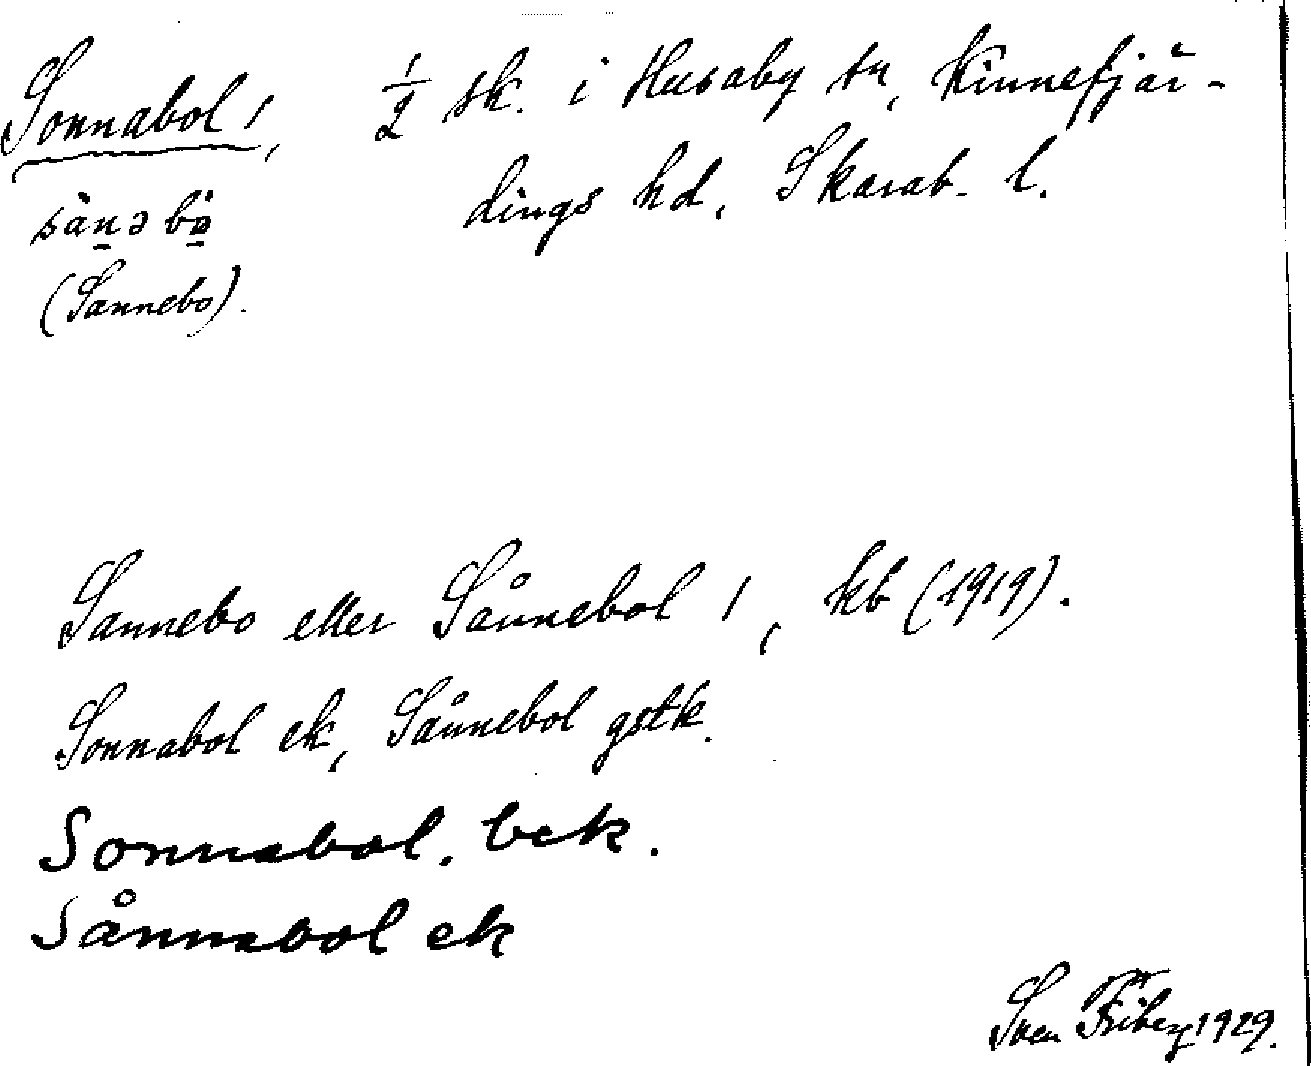 Sonnabol 1, 1/2 sk. i Husaby sn, Kinnefjär-
dings hd, Skarab. l.
(Sannebo).
Sannebo eller Sånnebol 1, kb (1919).
Sonnabol ek, Sånnebol gstk.
Sonnabol. bek.
Sånnabol ek
Sven Friberg 1929.